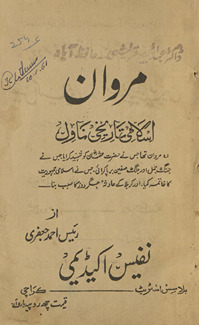 مروان
اسلامی تاریخی ناول
وہ مروان تھا جس نے حضرت عثمانؓ کو شہید کرایا جس نے
جنگ جمل اور جنگ صفین برپا کرائی، جس نے اسلامی جمہوریت
کا خاتمہ کر دیا، اور کربلا کے حادثہ جگر دوز کا سبب بنا
از
رئیس احمد جعفری
نفیس اکیڈیمی
بلاسس اسٹریٹ کراچی
قیمت چھ روپیہ